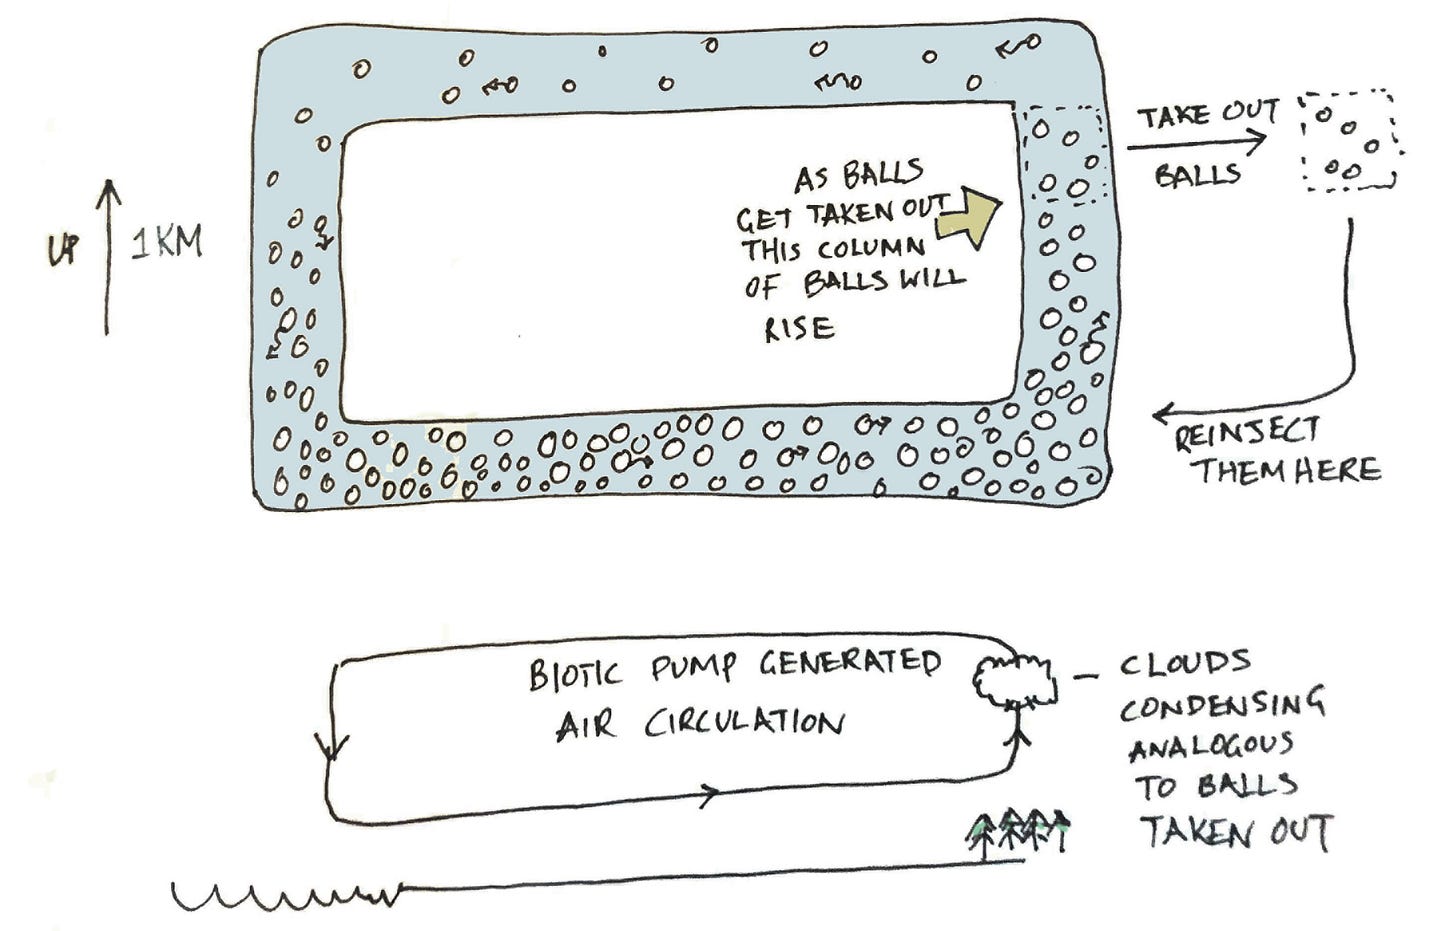 TAKE OUT
BALLS
AS BALLS
GET TAKEN OUT
THIS COLUMN
OF BALLS WILL
RISE
UP
1KM
REINJECT
THEM HERE
BIOTIC PUMP GENERATED
AIR CIRCULATION
CLOUDS
CONDENSING
ANALOGOUS
TO BALLS
TAKEN OUT